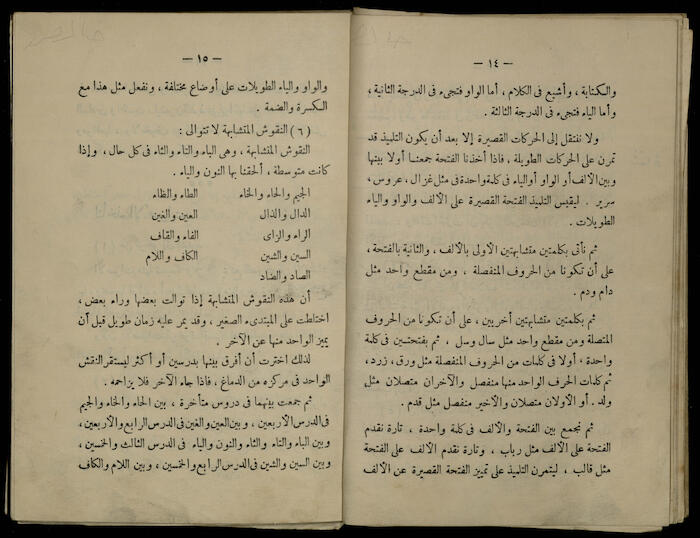 — ١٤ —
والكتابة ، وأشيع فى الكلام ، أما الواو فتجىء فى الدرجة الثانية ،
وأما الياء فتجىء فى الدرجة الثالثة .
ولا ننتقل إلى الحركات القصيرة إلا بعد أن يكون التلميذ قد
تمرن على الحركات الطويلة ، فاذا أخذنا الفتحة جمعنا أولا بينها
وبين الألف أو الواو أوالياء فى كلمة واحدة فى مثل غزال ، عروس ،
سرير . ليقيس التلميذ الفتحة القصيرة على الألف والواو والياء
الطويلات .
ثم نأتى بكلمتين متشابهتين الأولى بالألف ، والثانية بالفتحة ،
على أن تكونا من الحروف المنفصلة ، ومن مقطع واحد مثل
دام ودم .
ثم بكلمتين متشابهتين أخريين ، على أن تكونا من الحروف
المتصلة ومن مقطع واحد مثل سال وسل ، ثم بفتحتين فى كلمة
واحدة ، أولا فى كلمات من الحروف المنفصلة مثل ورق ، زرد ،
ثم كلمات الحرف الواحد منها منفصل والآخران متصلان مثل
ولد . أو الأولان متصلان والأخير منفصل مثل قدم .
ثم نجمع بين الفتحة والألف فى كلمة واحدة ، تارة نقدم
الفتحة على الألف مثل رباب ، وتارة نقدم الألف على الفتحة
مثل قالب ، ليتمرن التلميذ على تمييز الفتحة القصيرة عن الألف
— ١٥ —
والواو والياء الطويلات على أوضاع مختلفة ، ونفعل مثل هذا مع
الكسرة والضمة .
( ٦ ) النقوش المتشابهة لا تتوالى :
النقوش المتشابهة ، وهى الباء والتاء والثاء فى كل حال ، وإذا
كانت متوسطة ، ألحقنا بها النون والياء .
الجيم والحاء والخاء الطاء والظاء
الدال والذال العين والغين
الراء والزاى الفاء والقاف
السين والشين الكاف واللام
الصاد والضاد
أن هذه النقوش المتشابهة إذا توالت بعضها وراء بعض ،
اختلطت على المبتدىء الصغير ، وقد يمر عليه زمان طويل قبل أن
يميز الواحد منها عن الآخر .
لذلك اخترت أن أفرق بينها بدرسين أو أكثر ليستقر النقش
الواحد فى مركزه من الدماغ ، فاذا جاء الآخر فلا يزاحمه .
ثم جمعت بينهما فى دروس متأخرة ، بين الحاء والخاء والجيم
فى الدرس الأربعين ، وبين العين والغين فى الدرس الرابع والأربعين ،
وبين الباء والتاء والثاء والنون والياء فى الدرس الثالث والخمسين ،
وبين السين والشين فى الدرس الرابع والخمسين ، وبين اللام والكاف